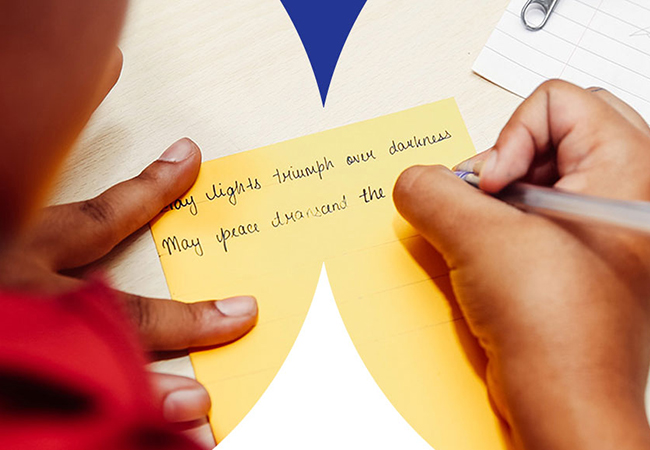 May lights triumph over darkness
May peace transcend the